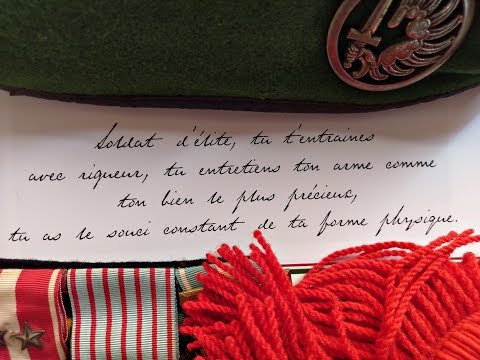 Soldat d'élite, tu t'entraines
avec rigueur, tu entretiens ton arme comme
ton bien le plus précieux,
tu as le souci constant de ta forme physique.